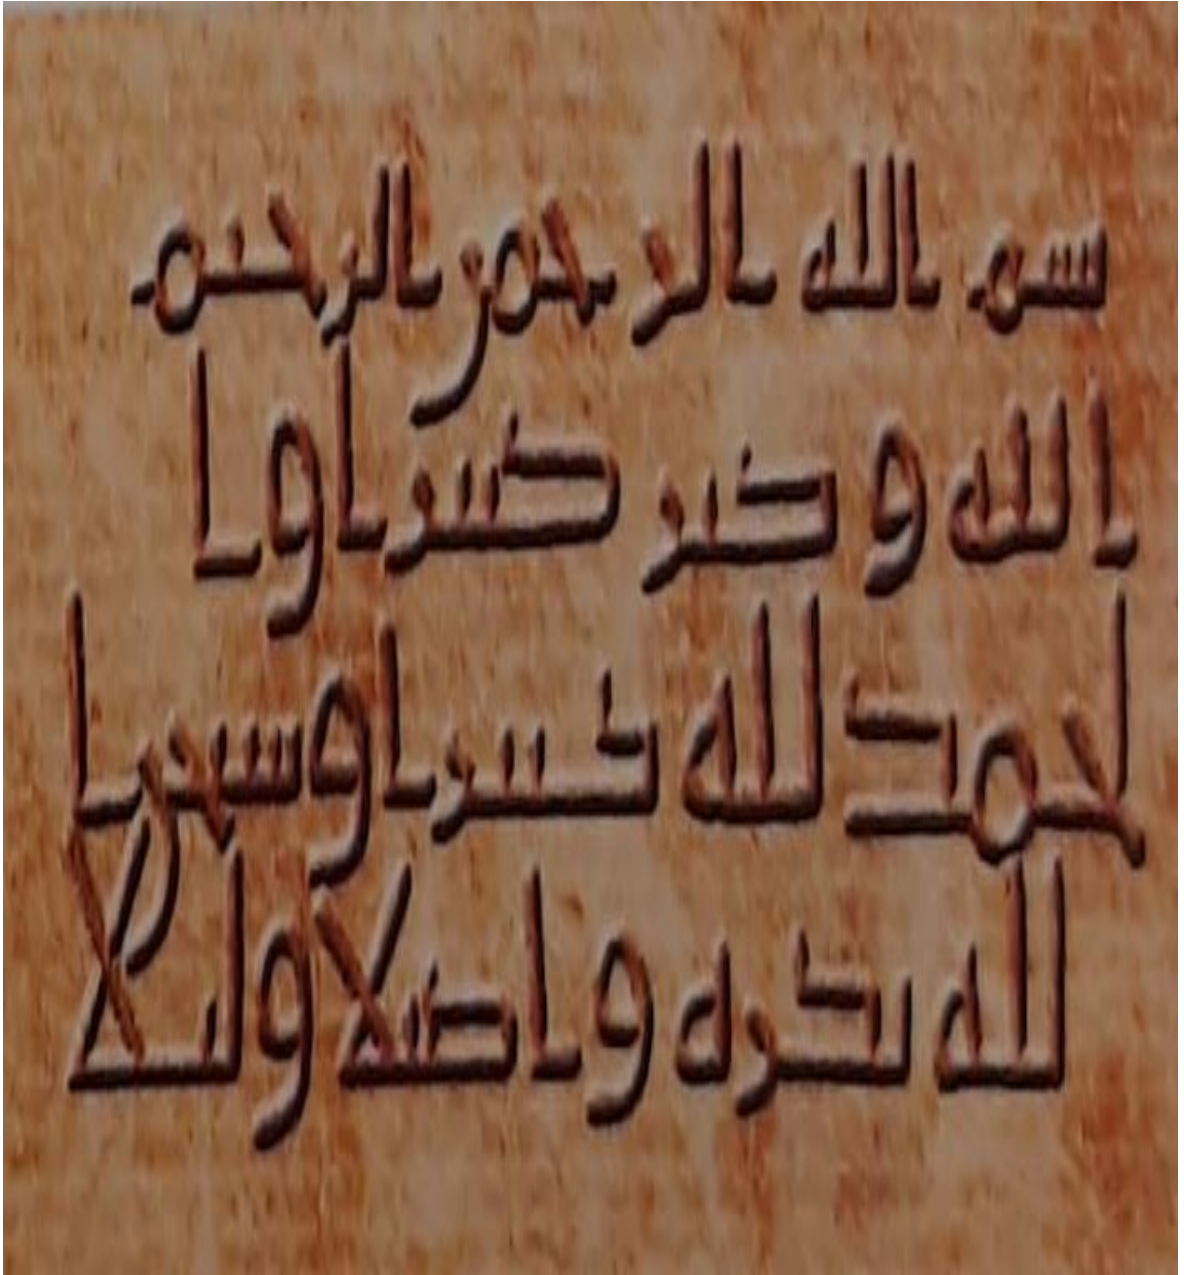 بسم الله الرحمن الرحيم
الله وكبر كبيرا وا
لحمد لله كثيرا وسبحن ا
لله بكرة واصيلا وليلا